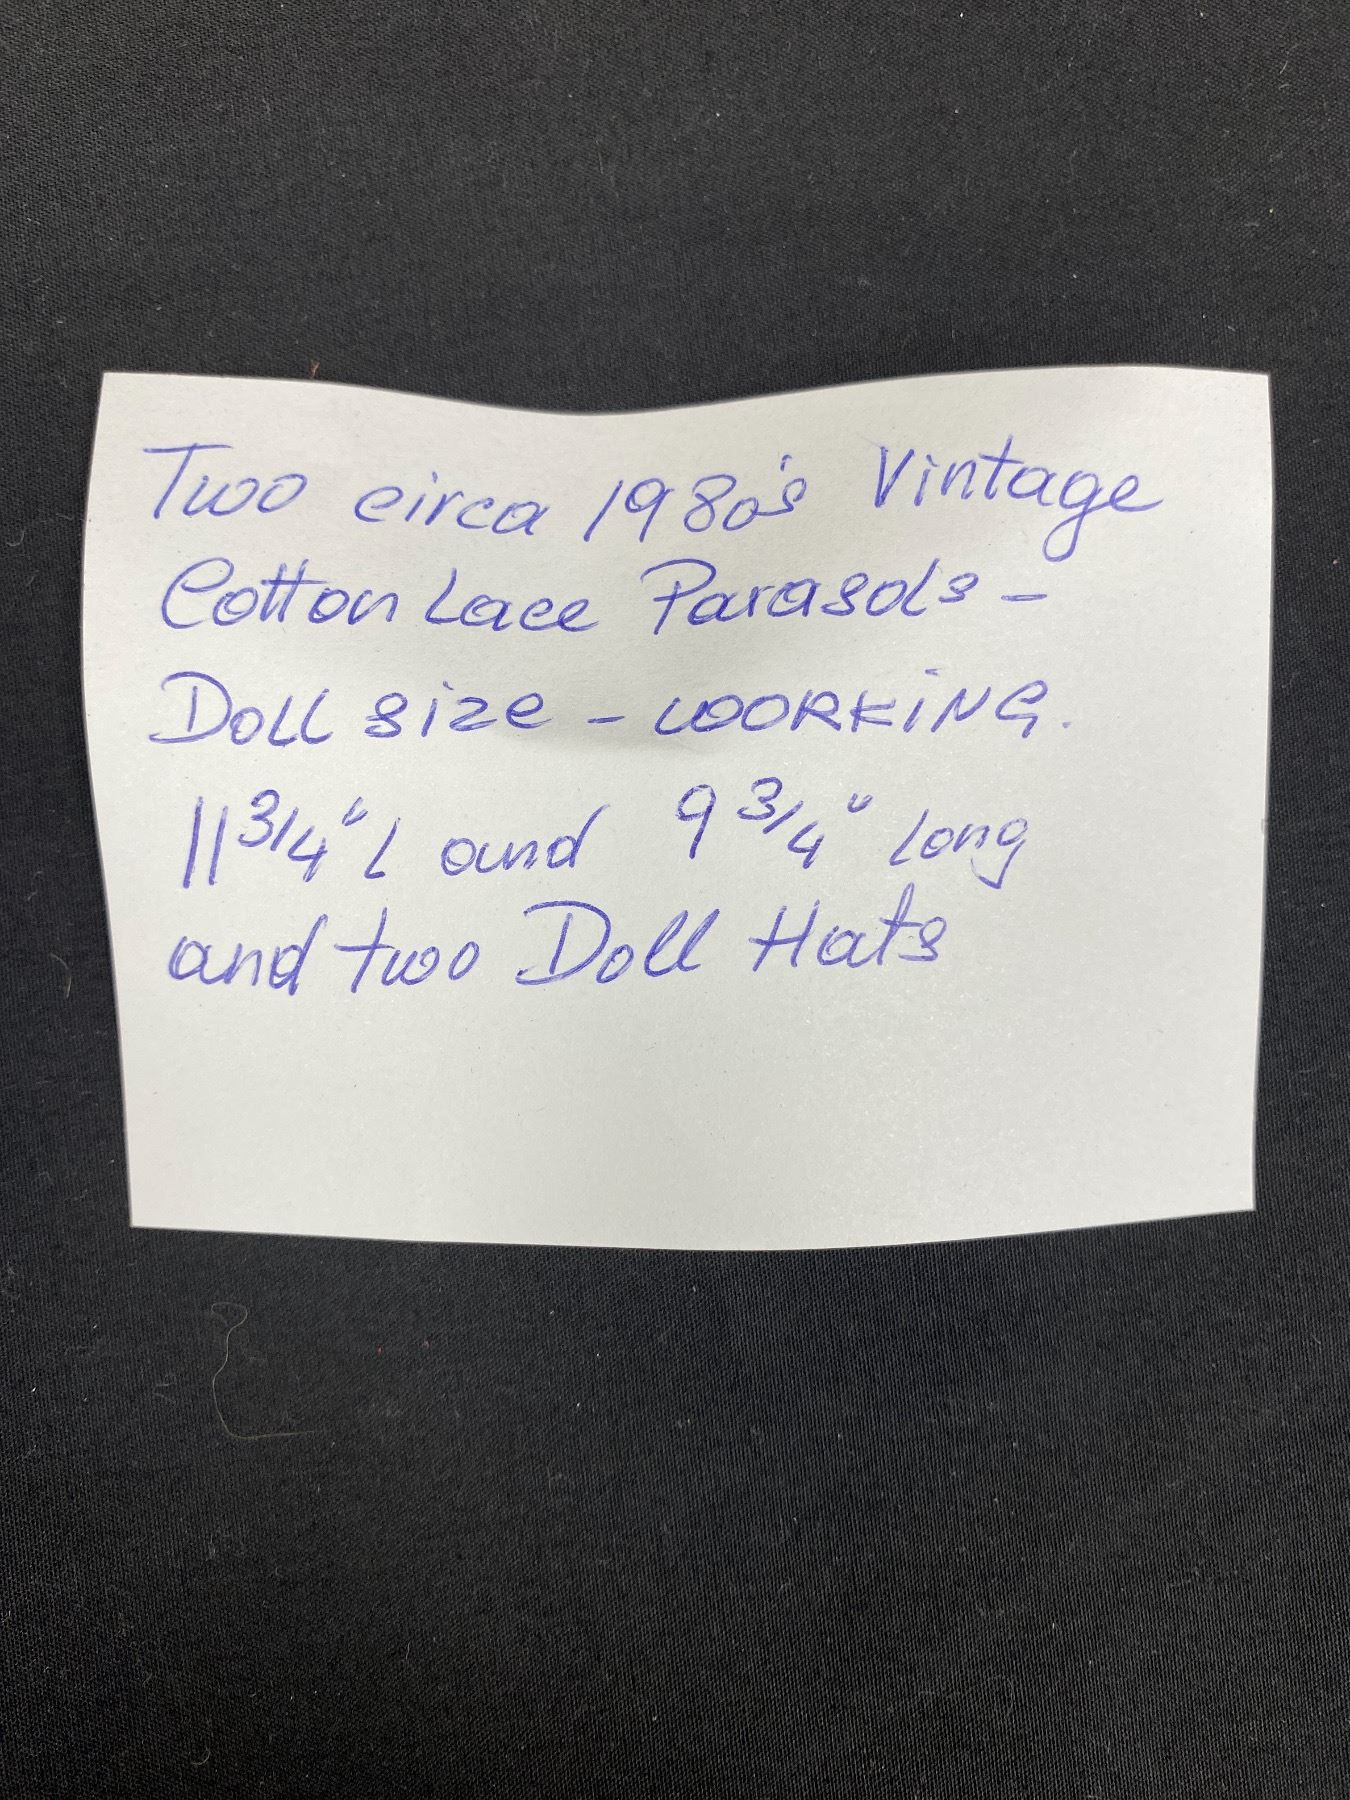 Two circa 1980's Vintage
Cotton Lace Parasols -
Doll size - WORKING.
11 3/4" L and 9 3/4" Long
and two Doll Hats